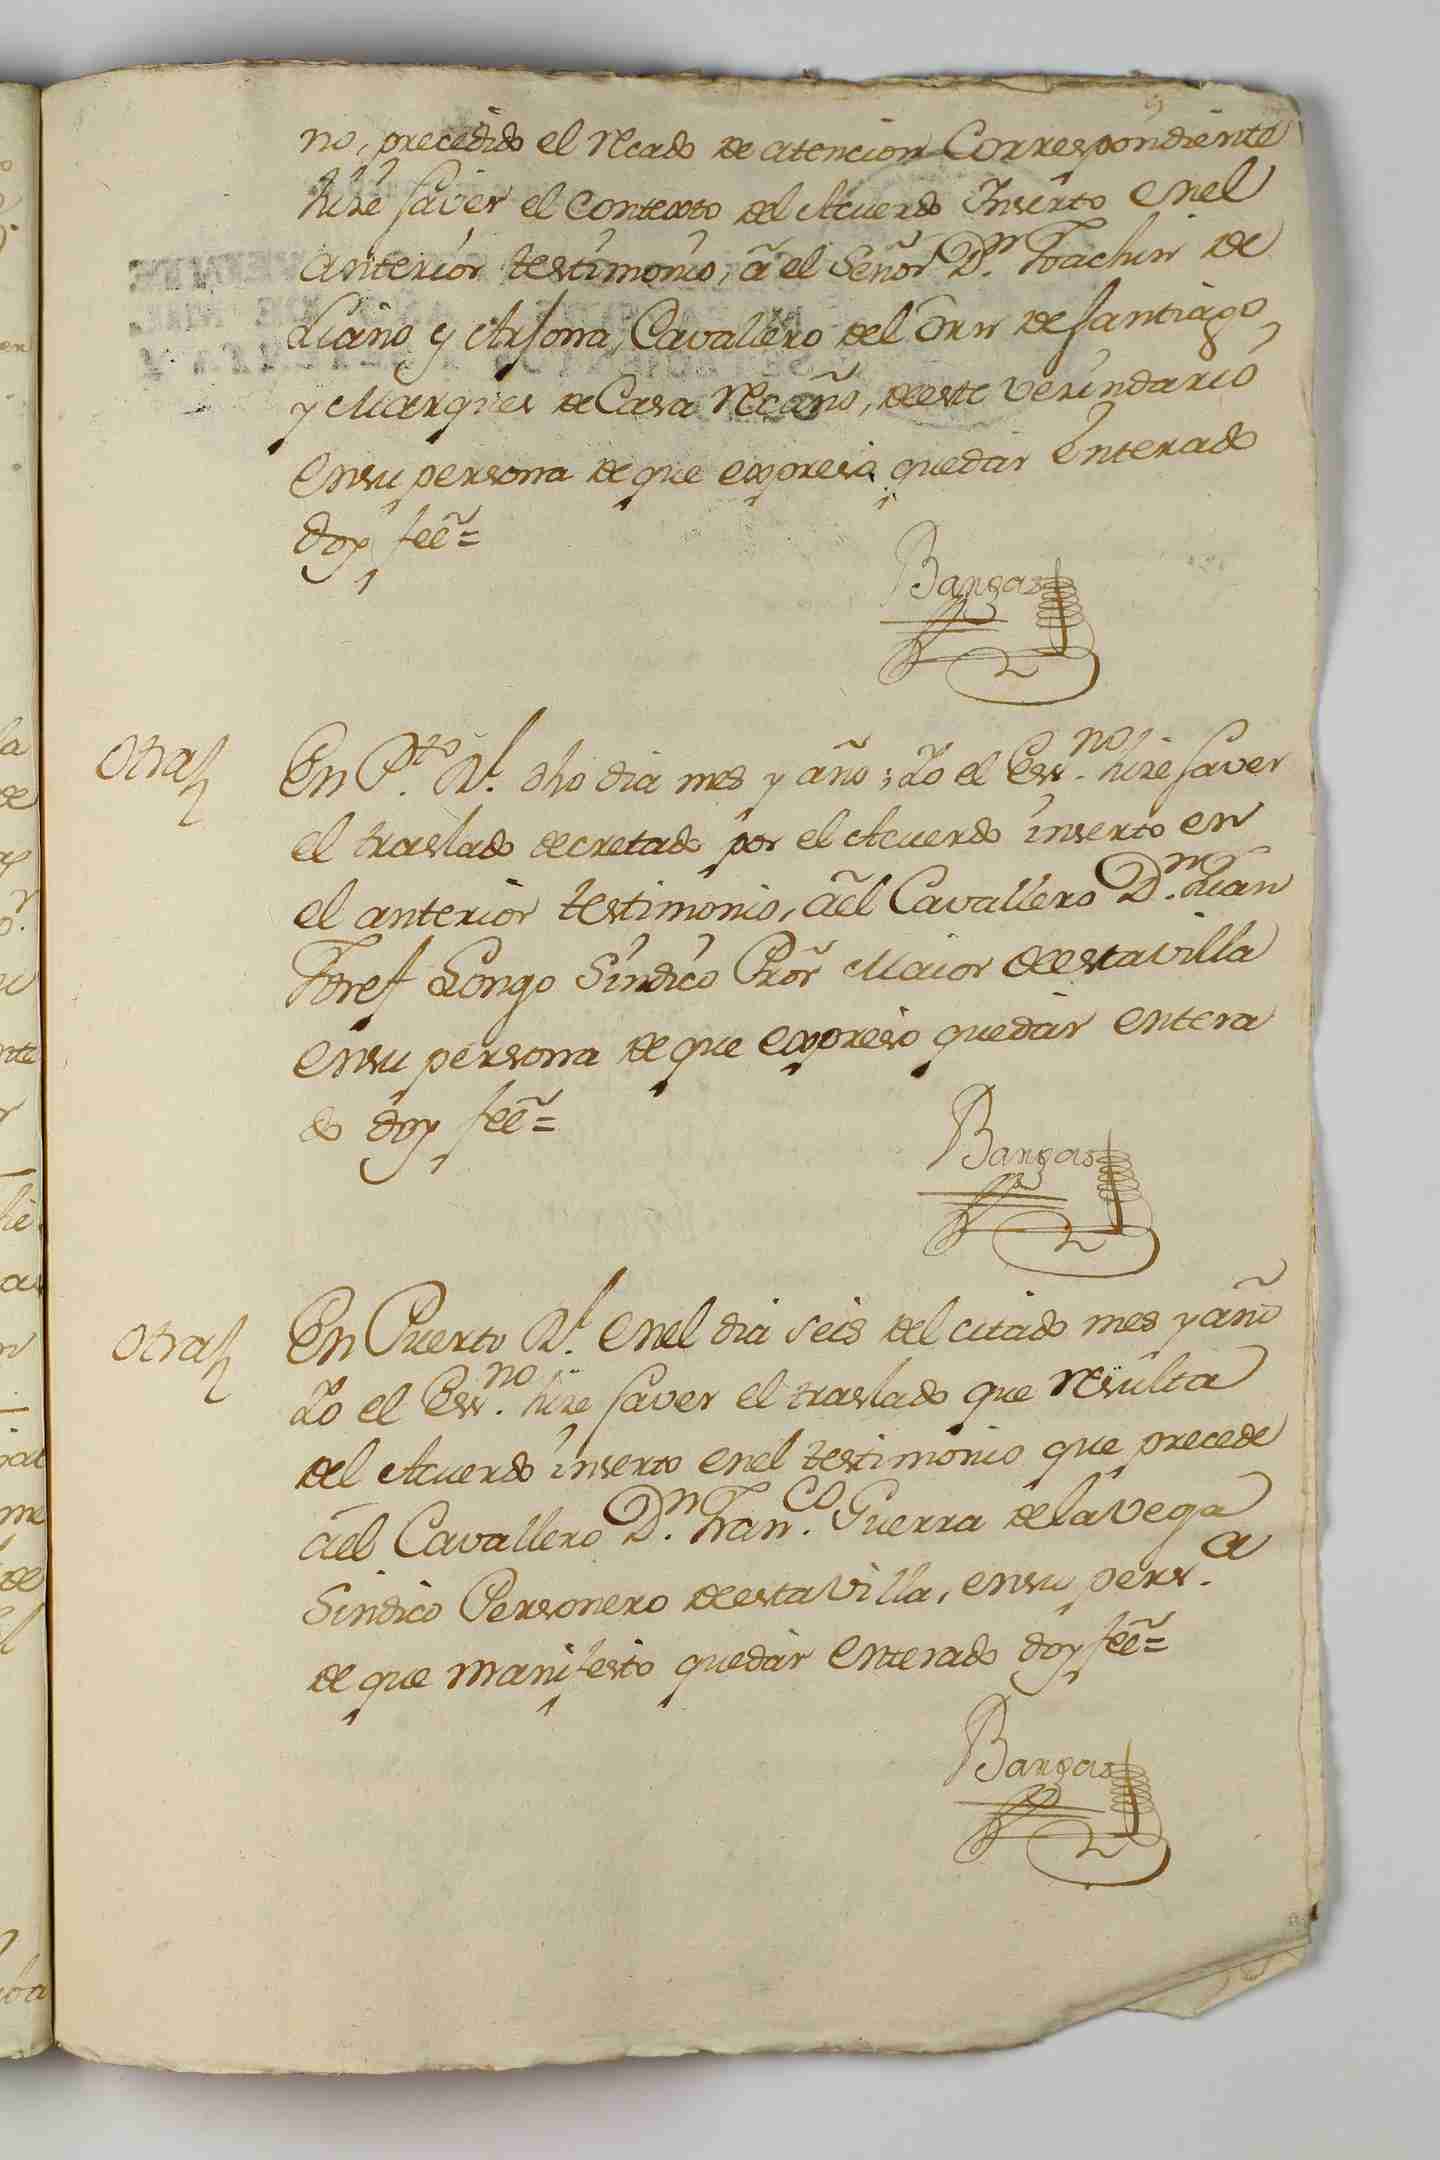 no, precedido el recado de atencion Correspondiente
hize saver el Contexto del Acuerdo Inserto enel
anterior testimonio, â el Señor Dn. Joachin de
Liaño y Arsona, Cavallero del Orn de santiago,
y Marques de Casa recaño, deeste Vesindario
ensu persona de que expreso quedar Enterado
doy feê =
Bangas
Otra
En Pto. Rl. dho dia mes y año; Yo el Essno. hize saver
el traslado decretado por el Acuerdo inserto en
el anterior testimonio, âel Cavallero Dn. Juan
Josef Longo Sindico Pror Maior deesta villa
ensu persona de que expreso quedar entera
do doy feê =
Bangas
Otra
En Puerto Rl. enel dia seis del citado mes y año
Yo el Essno. hize saver el traslado que resulta
del Acuerdo inserto enel testimonio que precede
âel Cavallero Dn. Franco. Guerra dela Vega
Sindico Personero deesta Villa, ensu persa.
de que manifesto quedar enterado doy feê =
Bangas